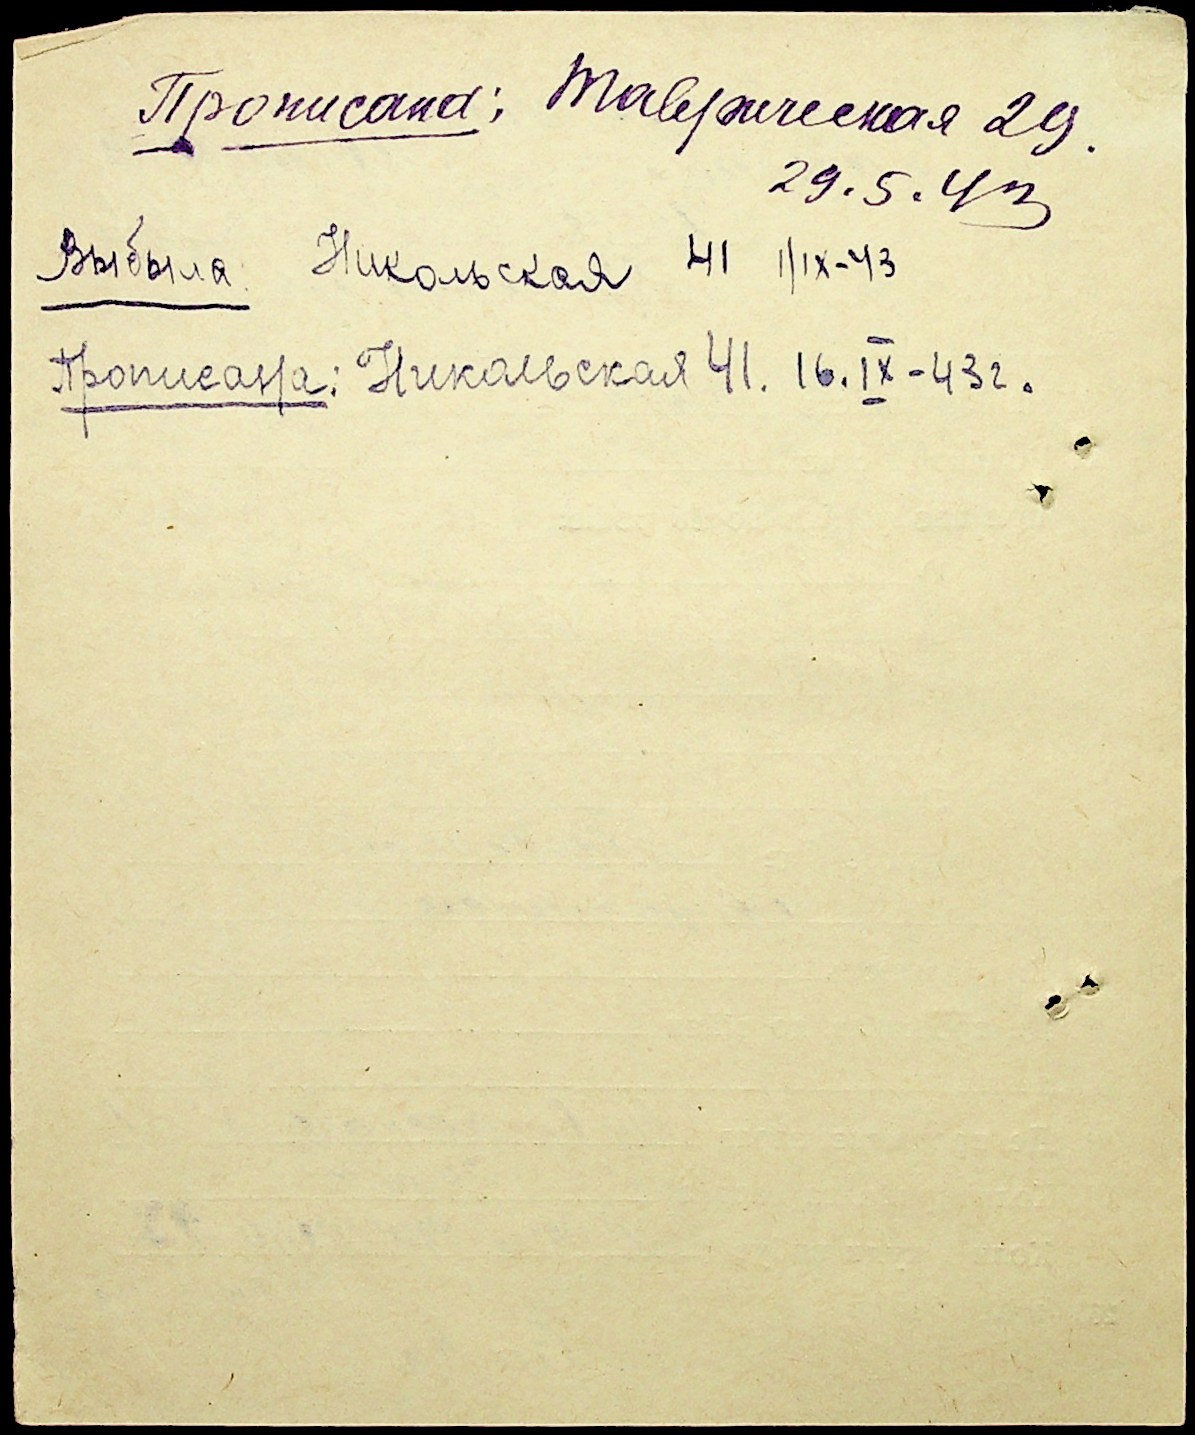 Прописана: Таврическая 29.
29.5.43
Выбыла: Никольская 41 1/IX-43
Прописана: Никольская 41. 16.IX-43г.